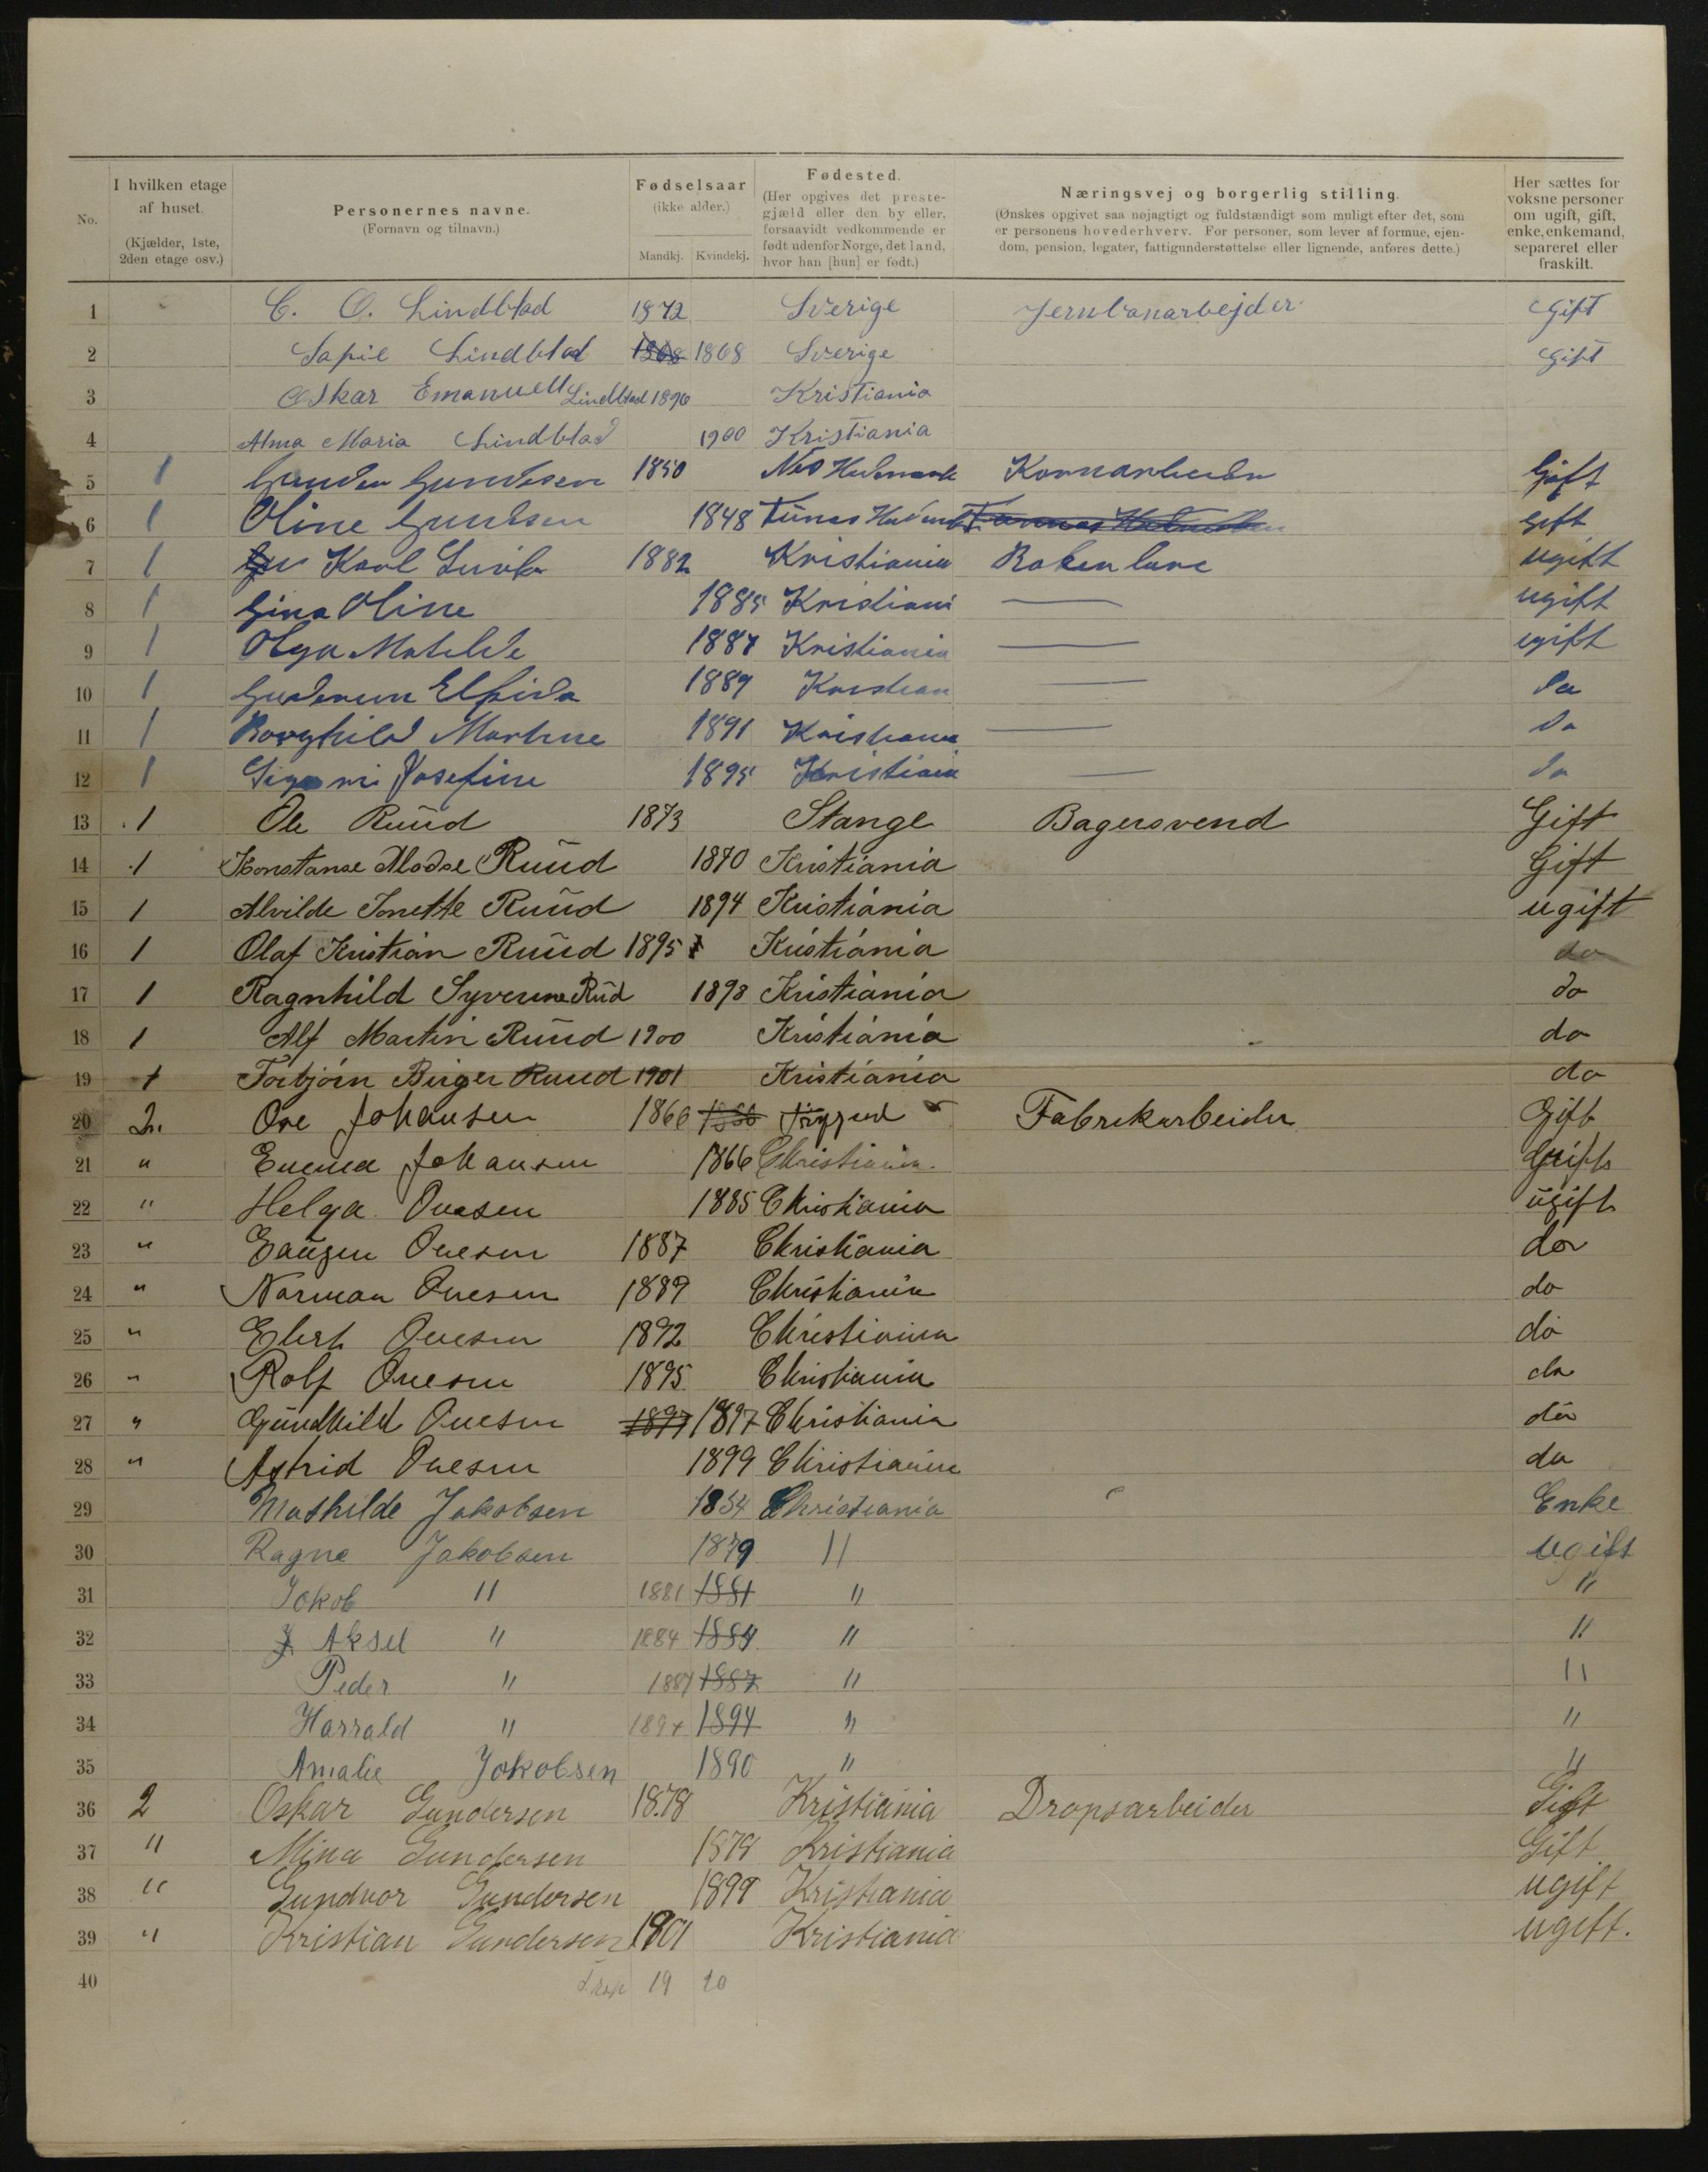 No.
I hvilken etage af huset. (Kjælder, 1ste, 2den etage osv.)
Personernes navne. (Fornavn og tilnavn.)
Fødselsaar (ikke alder.) Mandkj. Kvindekj.
Fødested. (Her opgives det prestegjæld eller den by eller, forsaavidt vedkommende er født udenfor Norge, det land, hvor han [hun] er født.)
Næringsvej og borgerlig stilling. (Ønskes opgivet saa nøjagtigt og fuldstændigt som muligt efter det, som er personens hovederhverv. For personer, som lever af formue, ejendom, pension, legater, fattigunderstøttelse eller lignende, anføres dette.)
Her sættes for voksne personer om ugift, gift, enke, enkemand, separeret eller fraskilt.
1 C. O. Lindblad 1872 Sverige Jernbanarbejder Gift
2 Sofie Lindblad 1868 1868 Sverige Gift
3 Oskar Emanuell Lindblad 1896 Kristiania
4 Alma Maria Lindblad 1900 Kristiania
5 1 Gunder Gundesen 1850 Nes Hedemark Gift
6 1 Oline Gundesen 1848 Gift
7 1 Karl 1882 Kristiania ugift
8 1 Gina Oline 1885 Kristiani — ugift
9 1 Olga Matilde 1887 Kristiania — ugift
10 1 1889 Kristian — do
11 1 Borghild Martine 1891 Kristiania — do
12 1 Josefine 1895 Kristiania — do
13 1 Ole Ruud 1873 Stange Bagersvend Gift
14 1 Konstanse Ruud 1870 Kristiania Gift
15 1 Alvilde Ruud 1894 Kristiania ugift
16 1 Olaf Kristian Ruud 1895 Kristiania do
17 1 Ragnhild Syverine Rud 1898 Kristiania do
18 1 Alf Martin Ruud 1900 Kristiania do
19 1 Torbjørn Birger Ruud 1901 Kristiania do
20 2. Ove Johansen 1866 Fabrikarbeider Gift
21 " Emma Johansen 1866 Christiania. Gift
22 " Helga Ovesen 1885 Christiania ugift
23 " Eaugen Ovesen 1887 Christiania do
24 " Norman Ovesen 1889 Christiania do
25 " Ebert Ovesen 1892 Christiania do
26 " Rolf Ovesen 1895 Christiania do
27 " Gundhild Ovesen 1897 1897 Christiania do
28 " Astrid Ovesen 1899 Christiania do
29 Mathilde Jakobsen 1854 Christiania Enke
30 Ragna Jakobsen 1879 " ugift
31 Jakob " 1881 1881 " "
32 Aksel " 1884 1884 " "
33 Peder " 1887 1887 " "
34 Harrald " 1894 1894 " "
35 Amalie Jakobsen 1890 " "
36 2 Oskar Gundersen 1878 Kristiania Dropsarbeider Gift
37 " Mina Gundersen 1878 Kristiania Gift
38 " Gundvor Gundersen 1899 Kristiania ugift
39 " Kristian Gundersen 1901 Kristiania ugift.
40 19 20